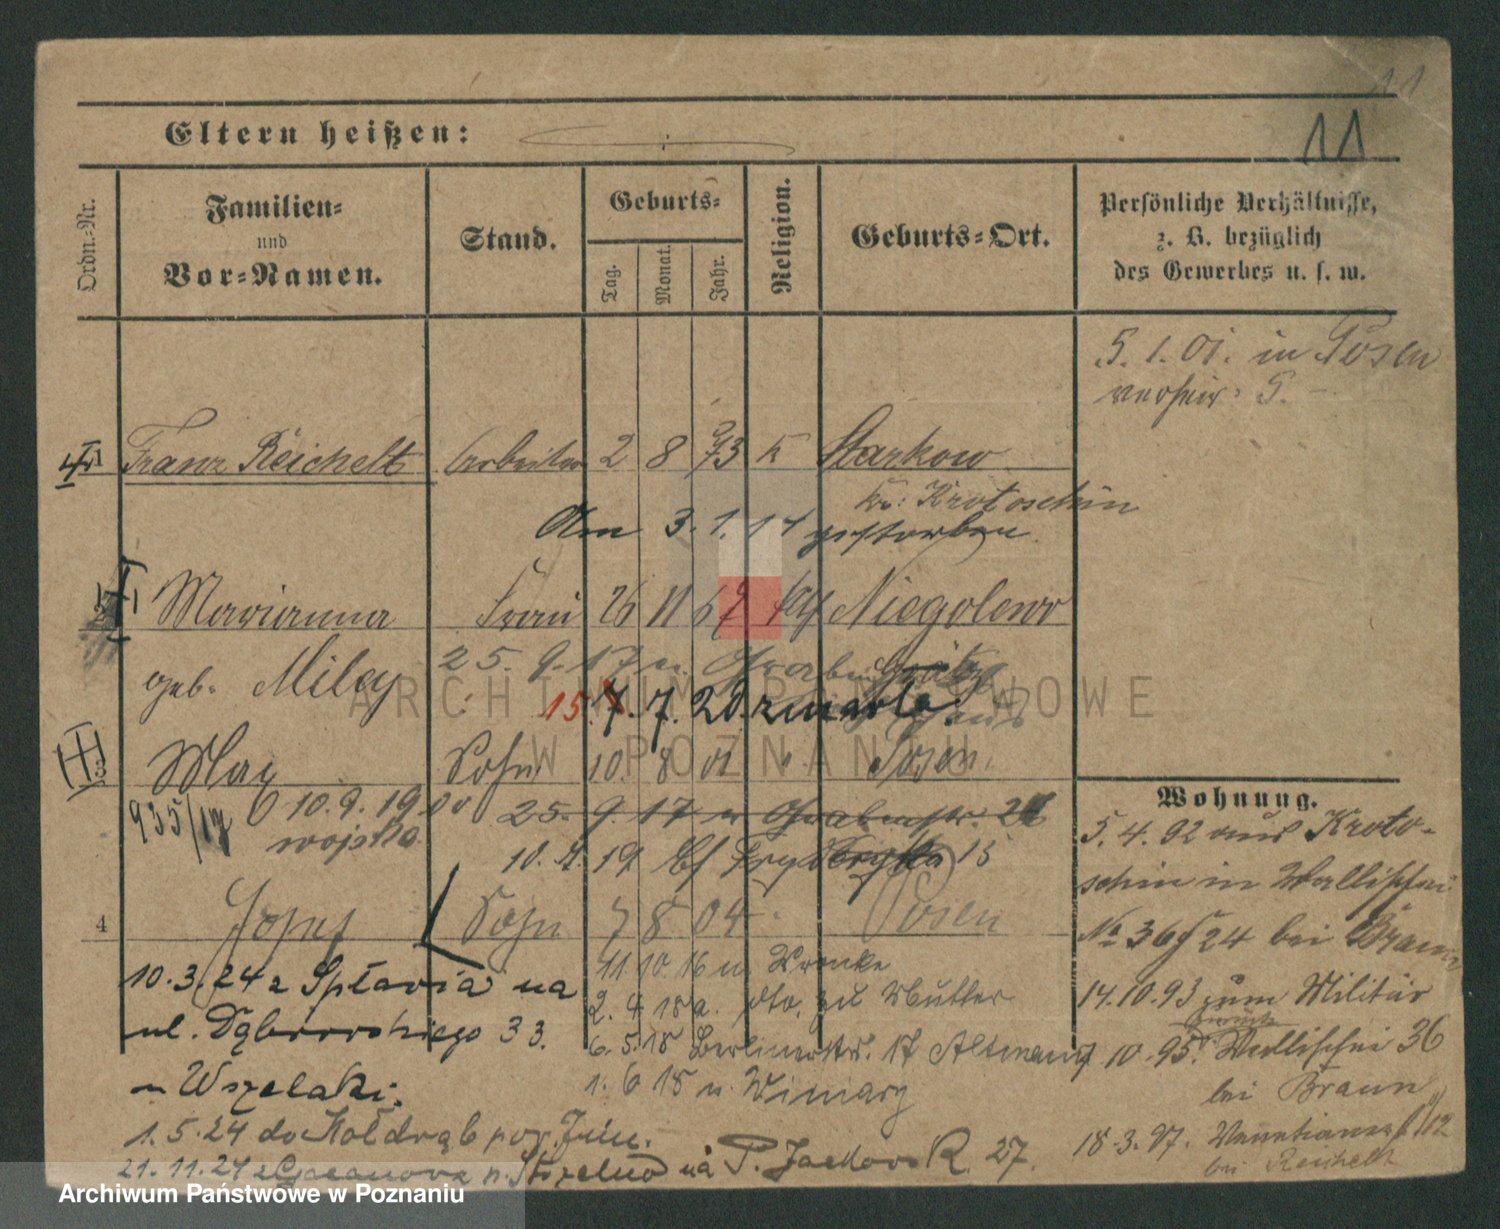 11
11
Eltern heißen:
Ordn.-Nr.
Familien-
und
Vor-Namen.
Stand.
Geburts-
Tag.
Monat.
Jahr.
Religion.
Geburts-Ort.
Persönliche Verhältnisse,
z. B. bezüglich
des Gewerbes u. s. w.
5. 1. 01. in Posen
verheir.
Franz Reichelt Arbeiter 2 8 73 k Starkow
Kr: Krotoschin
Am 3. 1. 17 gestorben
Marianna Frau 26 11 67 kth Niegolewo
geb. Miley
25. 9. 17 n.
15. 7. 20 zmarła
3
Max Sohn 10. 8 01 " Posen.
935/19 10. 9. 19
wojska
25. 9. 17 n Grabenstr. 2
10. 19 15
4 Josef Sohn 7 8 04 Posen
10.3.24 z Spławia na
ul. Dąbrowskiego 33.
Wszelaki.
1.5.24 do Kołdrąb pow. Żnin.
21.11.24 z p. Strzelno na P. Jackowo R. 27.
11 10. 16 n. Wronke
2. 4. 18 a. dto. zu Mutter
6. 5. 18 Berlinerstr. 17 Altmann
1. 6 18 n.
Wohnung.
5. 4. 92 aus Kroto-
schin in Wallischei
No 36 24 bei Braun
14. 10. 93 zum Militär
zurück
10. 95. Wallischei 36
bei Braun
18. 3. 97.
bei Reichelt
ARCHIWUM PAŃSTWOWE
W POZNANIU
Archiwum Państwowe w Poznaniu